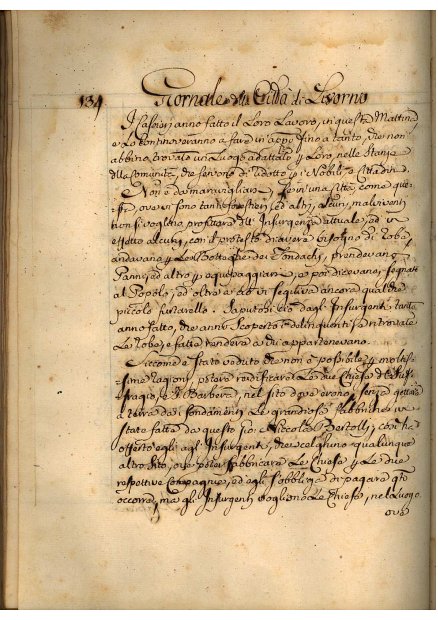 134 Giornale della Città di Livorno
I Tassieri anno fatto il Loro Lavoro, in questa Mattina
e lo continoveranno a fare in appo, fino a tanto, che non
abbino, trovato un Luogo adattato p Loro, nelle Stanze
della Comunità, che servono di Ridotto p i Nobili, e Cittadini.
Non è da maravigliarsi, se in una Città, come que-
sta, ove vi sono tanti forestieri, ed altri, alcuni, malviventi
non si voglino, profittare dell' Insurgenza attuale, ed in
effetto alcuni, con il pretesto di avere bisogno di Roba,
andavano p Le Botteghe dei Fondachi, prendevano
Panni, ed altro p equipaggiarsi, e poi dicevano, segnate
al Popolo, ed oltre a ciò vi seguiva ancora qualche
piccolo furtarello. Saputosi ciò dagli Insurgenti tanto
anno fatto, che anno Scoperto i delinquenti, e ritrovate
Le Robe, e fatte rendere a chi appartenevano.
Siccome è stato veduto che non è possibile, p moltis-
sime ragioni, potere riedificare Le due Chiese del
Suffragio, e S. Barbera, nel sito dove erono, senza gettare
a terra da i fondamenti Le grandiose fabbriche ivi
state fatte da questo Sig: Niccola Bertolli, così ha
offerto egli agl' Insurgenti, che scelghino qualunque
altro Sito, ove poter fabbricare Le Chiese p Le due
respettive Compagnie, ed egli s'obbliga di pagare qto
occorre, ma gli Insurgenti vogliono Le Chiese, nel Luogo
ove